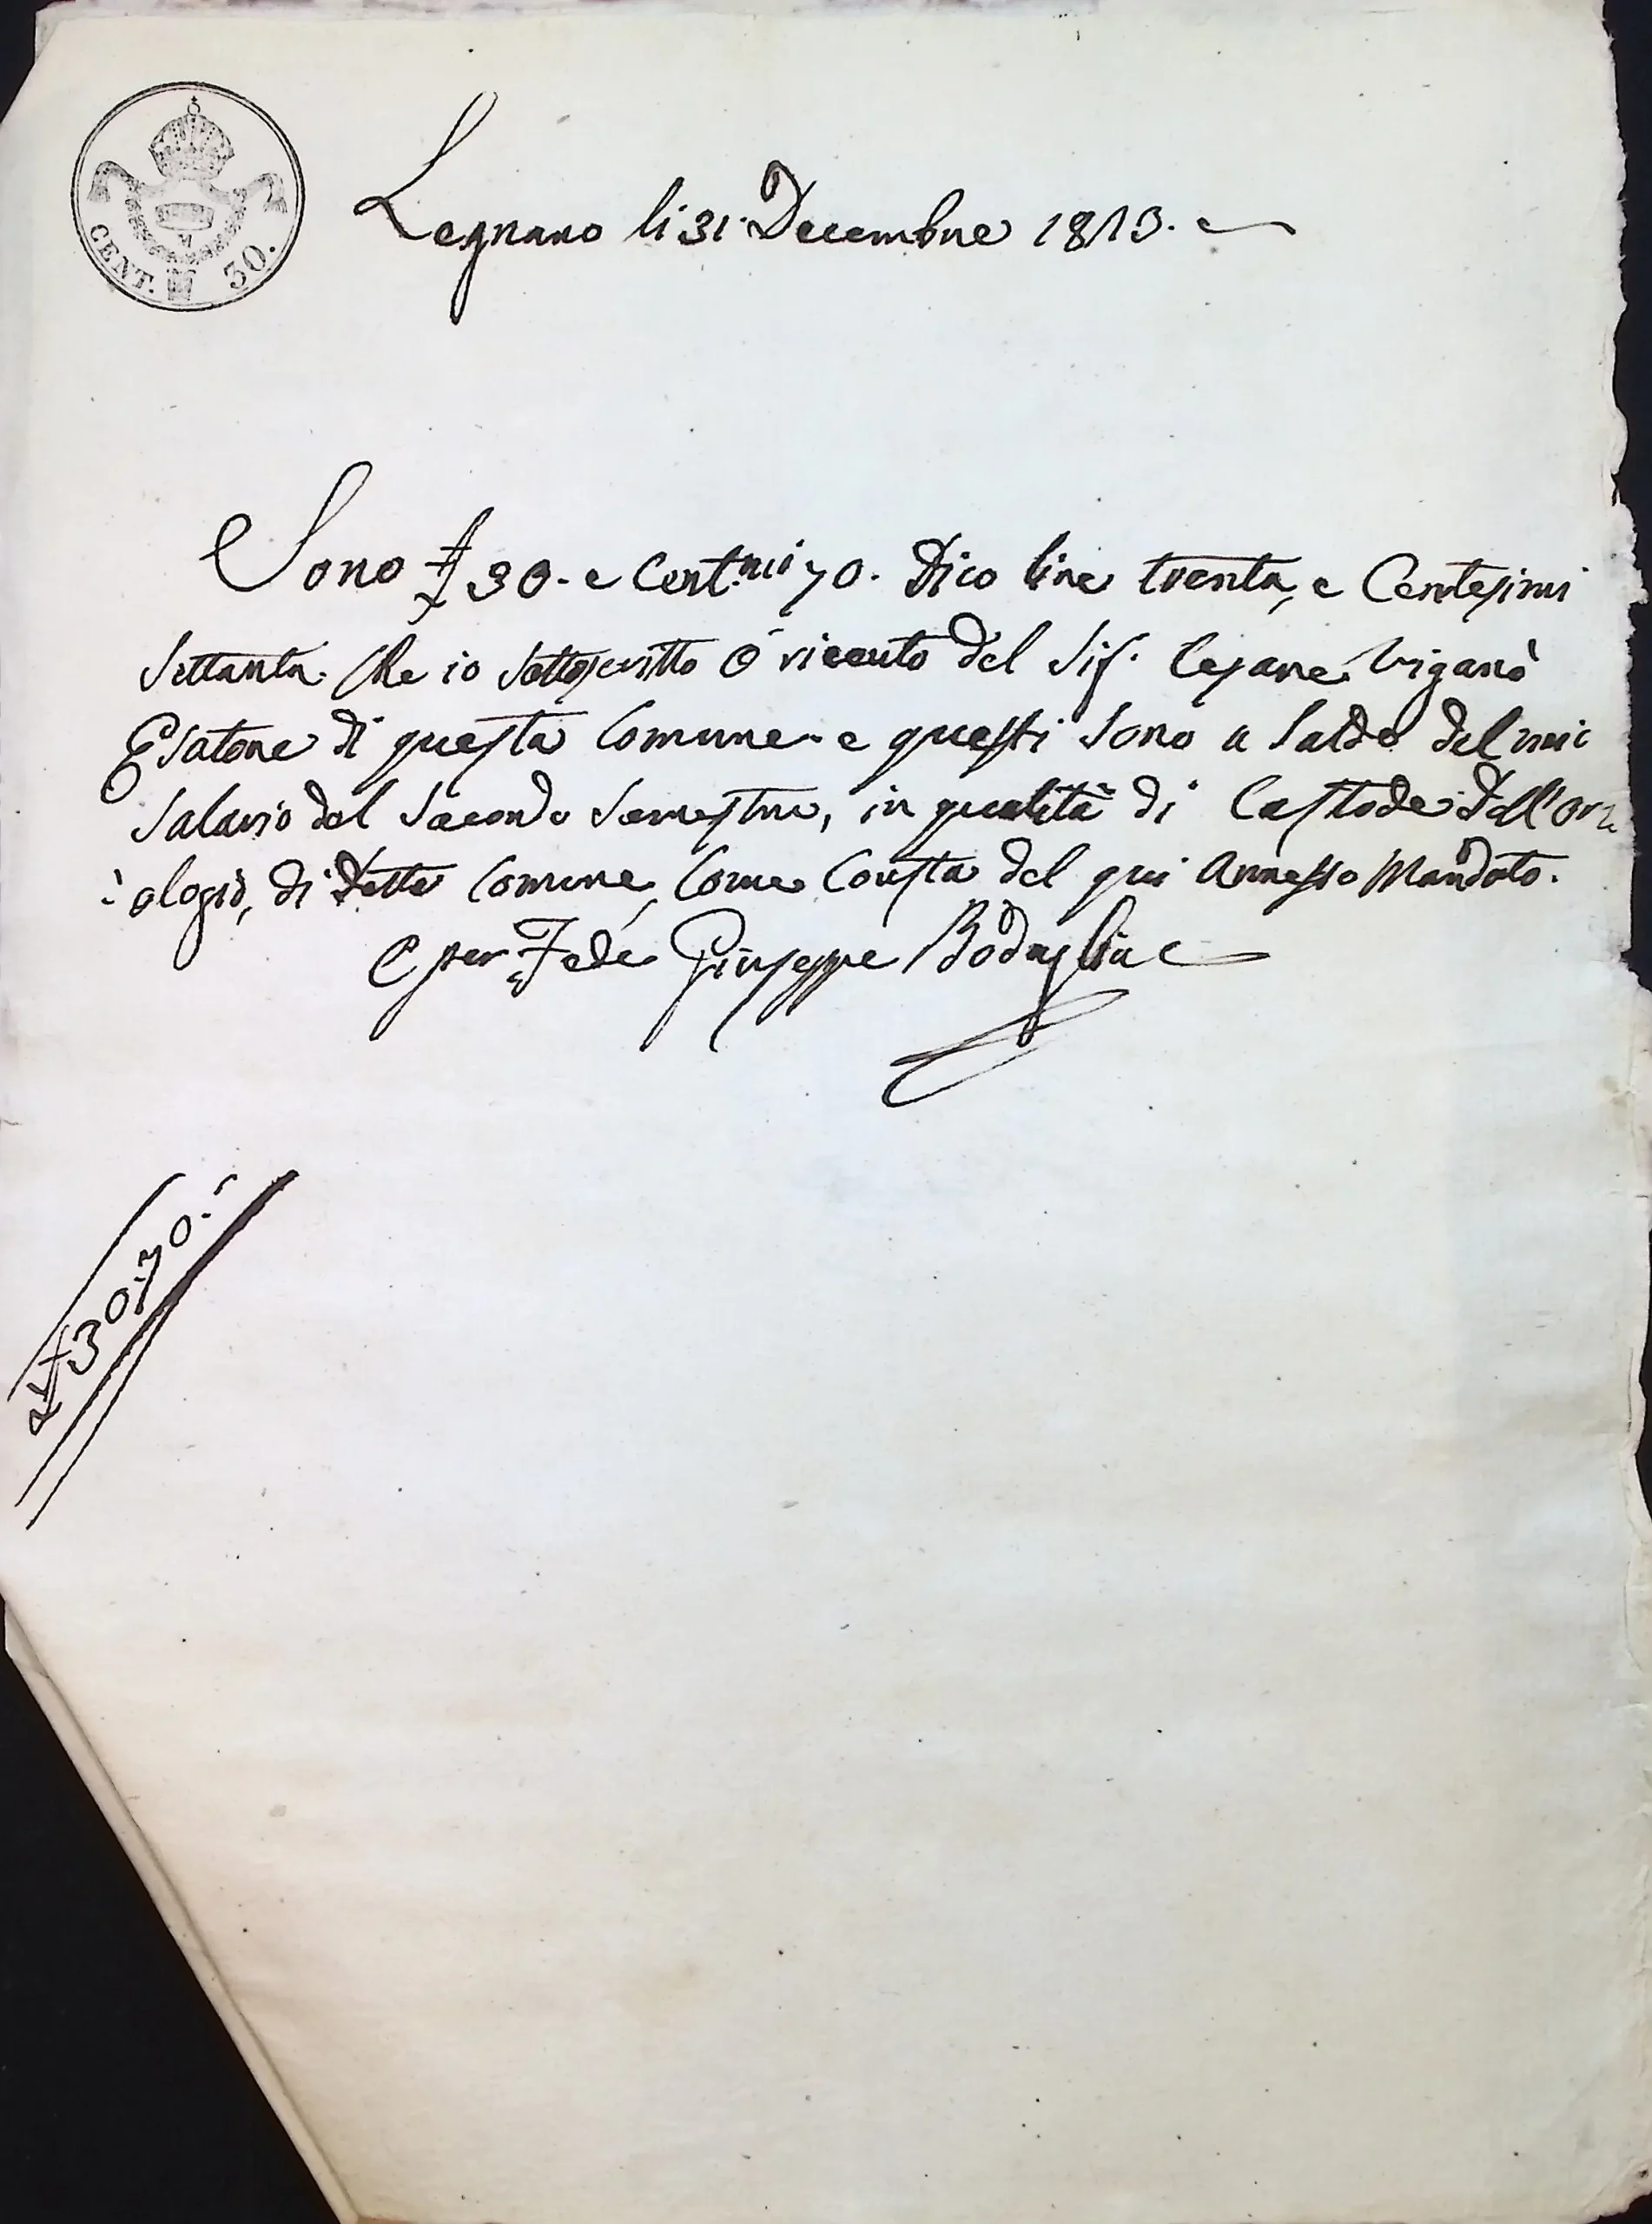 CENT. 50.
Legnano li 31. Decembre 1813.
Sono £ 30. e Cent.mi 70. Dico lire trenta, e Centesimi
Settanta. Che io Sottoscritto ò riceuto del Sig. Cesare Viganò
Esatore di questa Comune e questi Sono a Saldo del mio
Salario del Secondo Semestre, in qualità di Castode dell'Or
ologio, di detta Comune, Come Consta del qui Annesso Mandato.
E per Fede Giuseppe Bodaglia
£ 30.70.